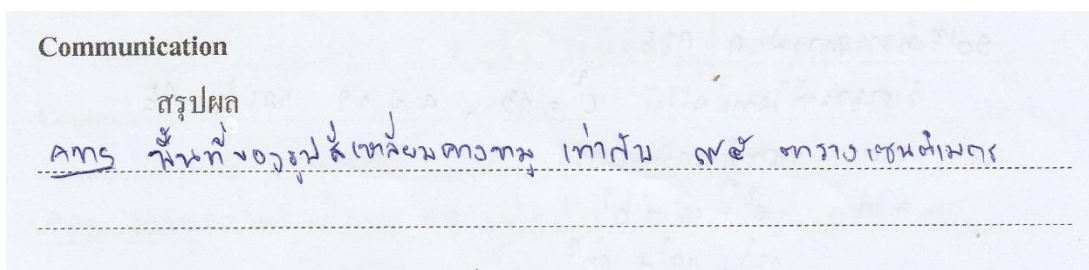 Communication
สรุปผล
Ans พื้นที่ของรูปสี่เหลี่ยมคางหมู เท่ากับ ตารางเซนติเมตร